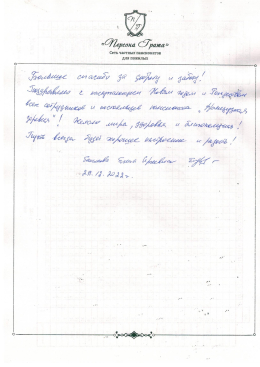 «Персона Грата»
Сеть частных пансионатов
для пожилых
Большое спасибо за доброту и заботу!
Поздравляем с наступающим Новым годом и Рождеством
всех сотрудников и постояльцев пансионата
деревня"! Желаем мира, здоровья и благополучия!
Пусть всегда будет хорошее настроение и радость!
29.12.2022г.